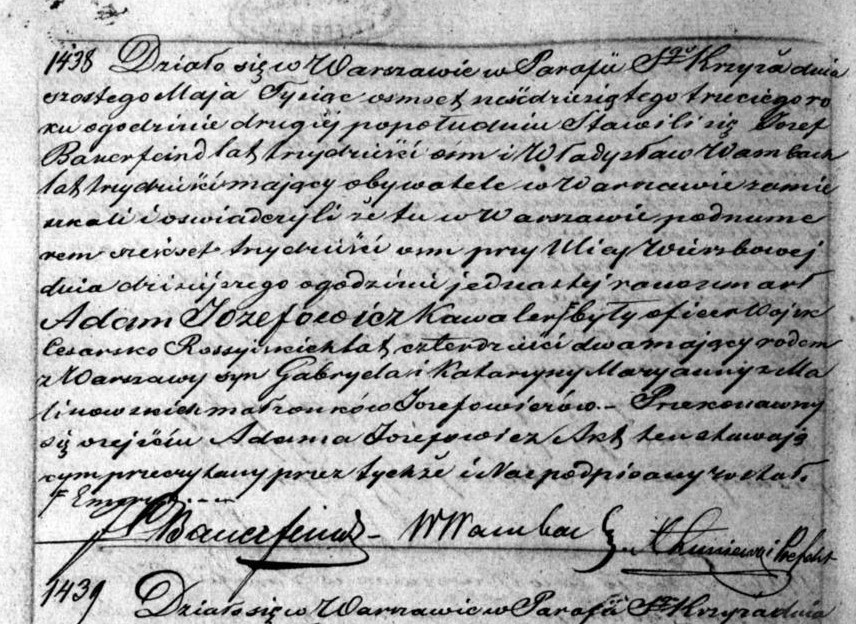 1438 Działo się w Warszawie w Parafii Sgo Krzyża dnia
szostego Maja Tysiąc osmset sześdziesiątego trzeciego ro
ku o godzinie drugiéj popołudniu Stawili się Jozef
Bauerfeind lat trzydzieści ośm i Władysław Wambach
lat trzydzieści mający obywatele w Warszawie zamie
szkali i oswiadczyli że tu w Warszawie pod nume
rem sześćset trzydzieści osm przy Ulicy Wierzbowej
dnia dzisiejszego o godzinie jednastej rano zmarł
Adam Jozefowicz Kawaler F były oficer Wojsk
Cesarsko Rossyiskich lat czterdzieści dwa mający rodem
z Warszawy syn Gabryela i Katarzyny Maryanny z Ma
linowskich małżonków Jozefowiczów. – Przekonawszy
się o zejściu Adama Jozefowicz Akt ten stawają
cym przeczytany przez tychże i Nas podpisany został.
F
J Bauerfeind – W Wambach Prefekt
1439 Działo się w Warszawie w Parafii Sgo Krzyża dnia